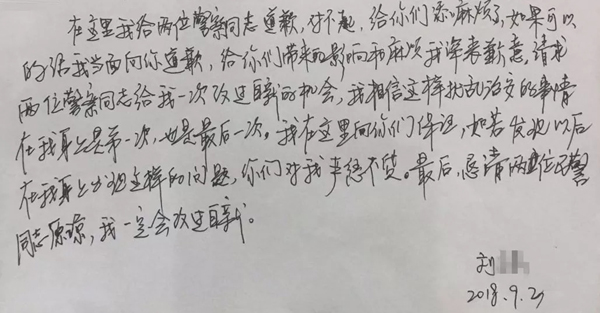 在这里我给两位警察同志道歉,对不起,给你们添麻烦了,如果可以
的话我当面向你道歉,给你们带来的影响和麻烦我深表歉意,请求
两位警察同志给我一次改过自新的机会,我相信这样扰乱治安的事情
在我身上是第一次,也是最后一次。我在这里向你们保证,如若发现以后
在我身上出现这样的问题,你们对我严惩不贷。最后,恳请两位民警
同志原谅,我一定会改过自新。
刘
2018.9.2